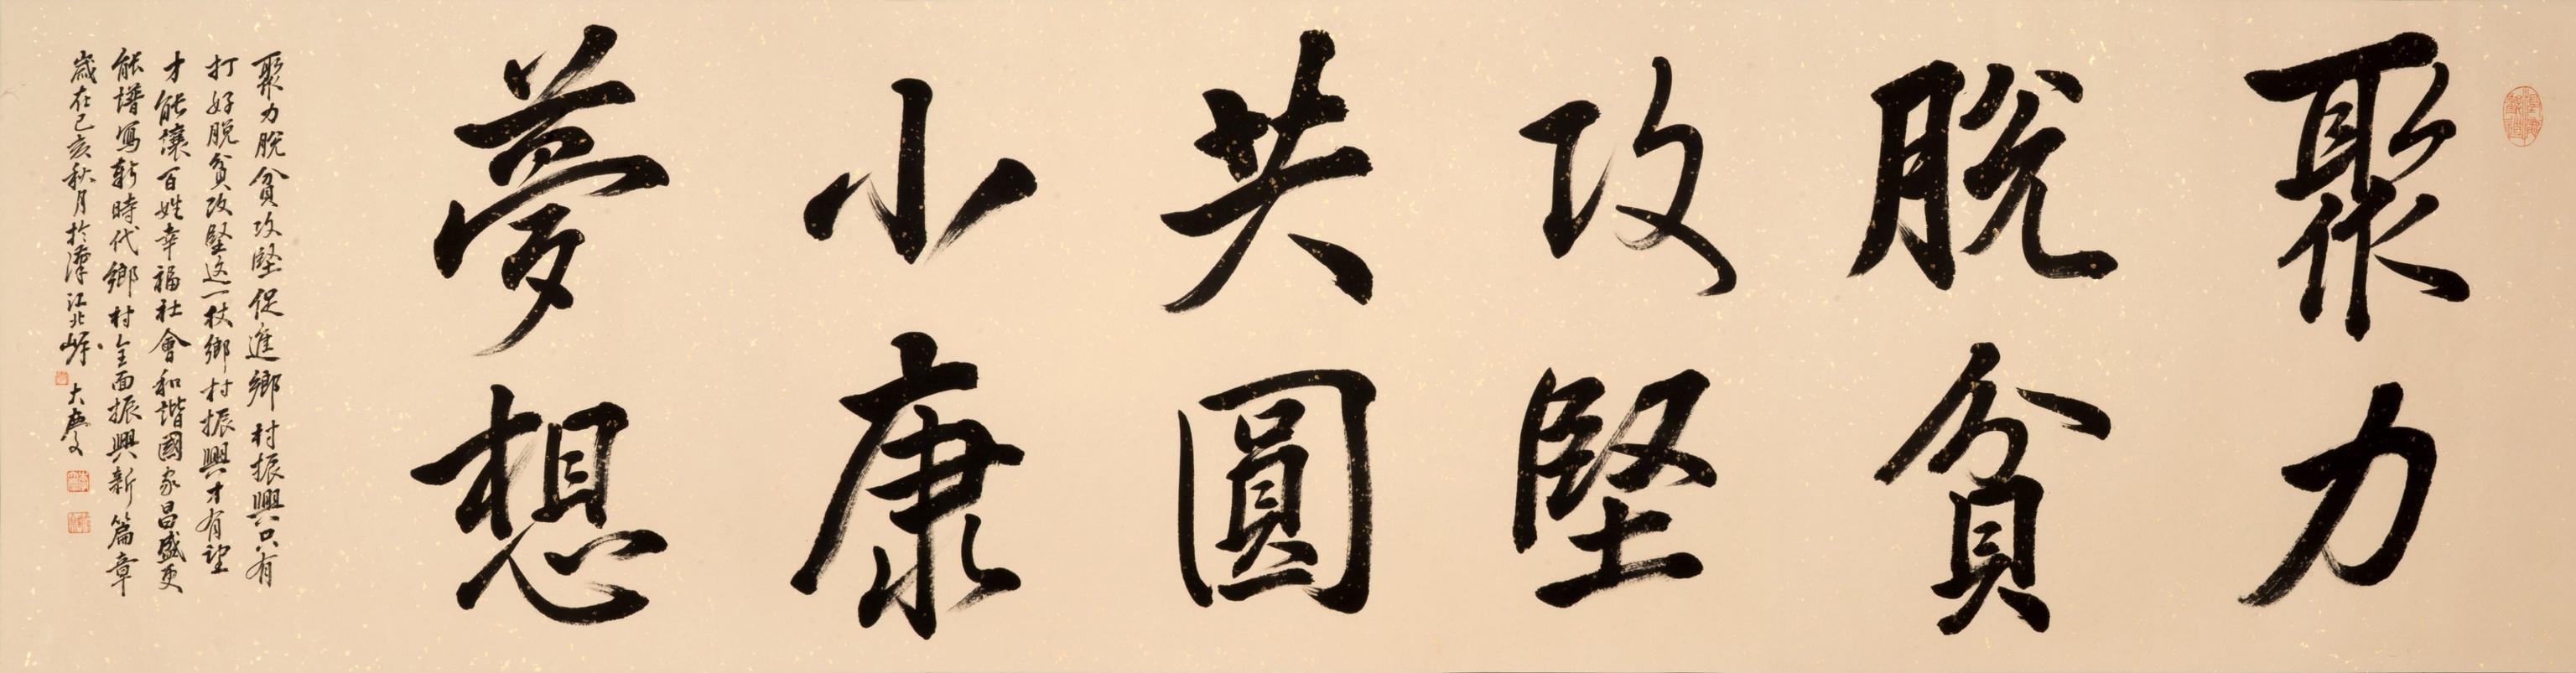 聚力
脫貧
攻堅
共圓
小康
夢想
聚力脫貧攻堅促進鄉村振興只有
打好脫貧攻堅這一仗鄉村振興才有望
才能讓百姓幸福社會和諧國家昌盛更
能譜寫新時代鄉村全面振興新篇章
歲在己亥秋月於漢江北岸大慶